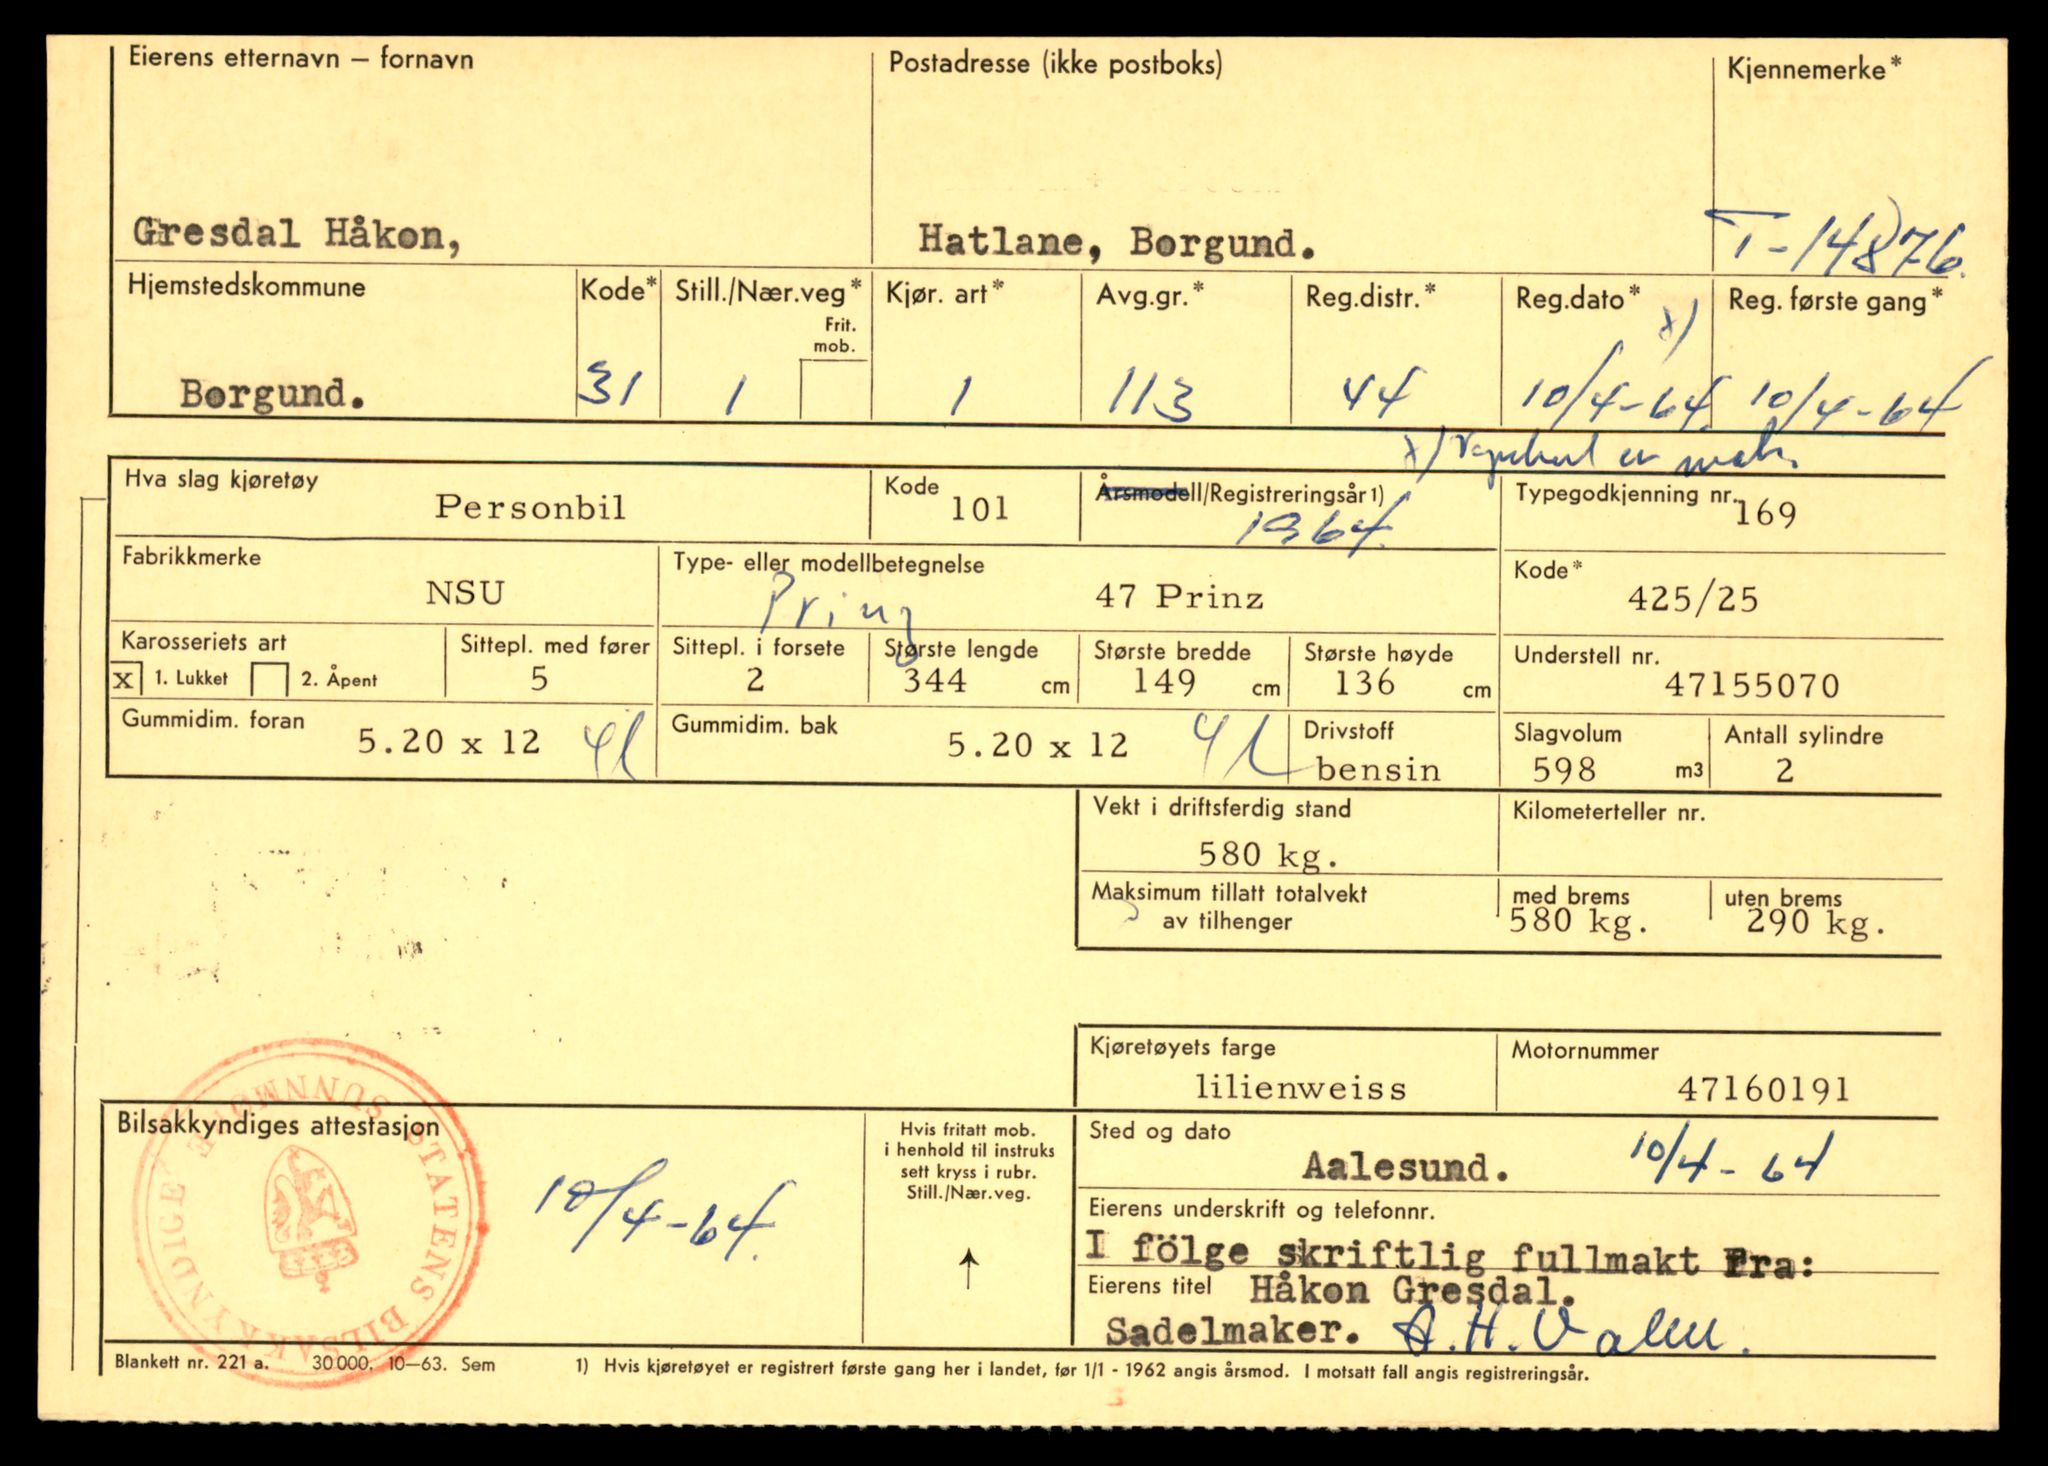 Eierens etternavn – fornavn Postadresse (ikke postboks) Kjennemerke*
Gresdal Håkon, Hatlane, Borgund. T-14876.
Hjemstedskommune Kode* Still./Nær.veg* Kjør. art* Avg.gr.* Reg.distr.* Reg.dato* x) Reg. første gang*
Frit.
mob.
Borgund. 31 1 1 113 44 10/4-64. 10/4-64
x)
Hva slag kjøretøy Kode Årsmodell/Registreringsår 1) Typegodkjenning nr.
Personbil 101 1964. 169
Fabrikkmerke Type- eller modellbetegnelse Kode*
NSU Prinz 47 Prinz 425/25
Karosseriets art Sittepl. med fører Sittepl. i forsete Største lengde Største bredde Største høyde Understell nr.
x 1. Lukket 2. Åpent 5 2 344 cm 149 cm 136 cm 47155070
Gummidim. foran Gummidim. bak Drivstoff Slagvolum Antall sylindre
5.20 x 12 4L 5.20 x 12 4L bensin 598 m3 2
Vekt i driftsferdig stand Kilometerteller nr.
580 kg.
Maksimum tillatt totalvekt med brems uten brems
av tilhenger 580 kg. 290 kg.
Kjøretøyets farge Motornummer
lilienweiss 47160191
Bilsakkyndiges attestasjon Hvis fritatt mob. Sted og dato
i henhold til instruks
sett kryss i rubr. Aalesund. 10/4-64
Still./Nær.veg.
10/4-64.
STATENS BILSAKKYNDIGE SUNNMØRE
Eierens underskrift og telefonnr.
I fölge skriftlig fullmakt Fra:
Eierens titel Håkon Gresdal.
Sadelmaker.
Blankett nr. 221 a. 30 000. 10–63. Sem 1) Hvis kjøretøyet er registrert første gang her i landet, før 1/1 - 1962 angis årsmod. I motsatt fall angis registreringsår.